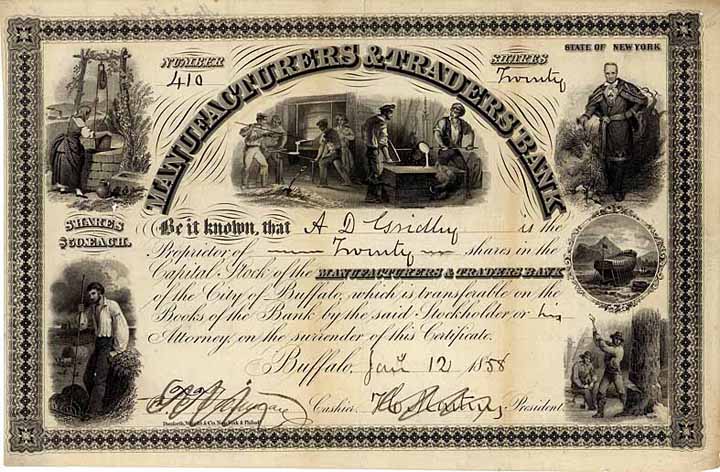 NUMBER
410
MANUFACTURERS & TRADERS BANK
SHARES
Twenty
STATE OF NEW YORK
SHARES
$50. EACH.
Be it known, that A D Gridley is the
Proprietor of Twenty shares in the
Capital Stock of the MANUFACTURERS & TRADERS BANK
of the City of Buffalo, which is transferable on the
Books of the Bank by the said Stockholder or his
Attorney, on the surrender of this Certificate.
Buffalo, Jan 12 1858
Cashier. President.
Danforth, Wright & Co. New York & Philad